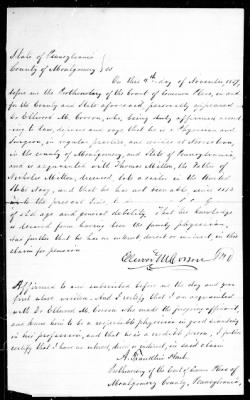 State of Pennsylvania
County of Montgomery } ss
On this 4th day of November 1887,
before me the Prothonotary of the Court of Common Pleas, in and
for the County and State aforesaid, personally appeared
Dr Ellwood M. Corson, who, being duly affirmed accord-
ing to law, deposes and says that he is a Physician and
Surgeon, in regular practice, and resides at Norristown,
in the county of Montgomery, and State of Pennsylvania,
and is acquainted with Thomas Milton, the Father of
Nicholas Milton, deceased, late a sailor in the United
States Navy, and that he has not been able, since
to the present time,
of old age and general debility. That his knowledge
is derived from having been the family physician,
and further that he has no interest direct or indirect, in this
claim for pension
Ellwood M. Corson M D
Affirmed to and subscribed before me the day and year
first above written. And I certify that I am acquainted
with Dr Ellwood M. Corson who made the foregoing affidavit,
and know him to be a respectable physician in good standing
in his profession, and that he is a credible person, I further
certify that I have no interest, direct or indirect, in said claim
A. Franklin
Prothonotary of the Court of Common Pleas of
Montgomery County, Pennsylvania,